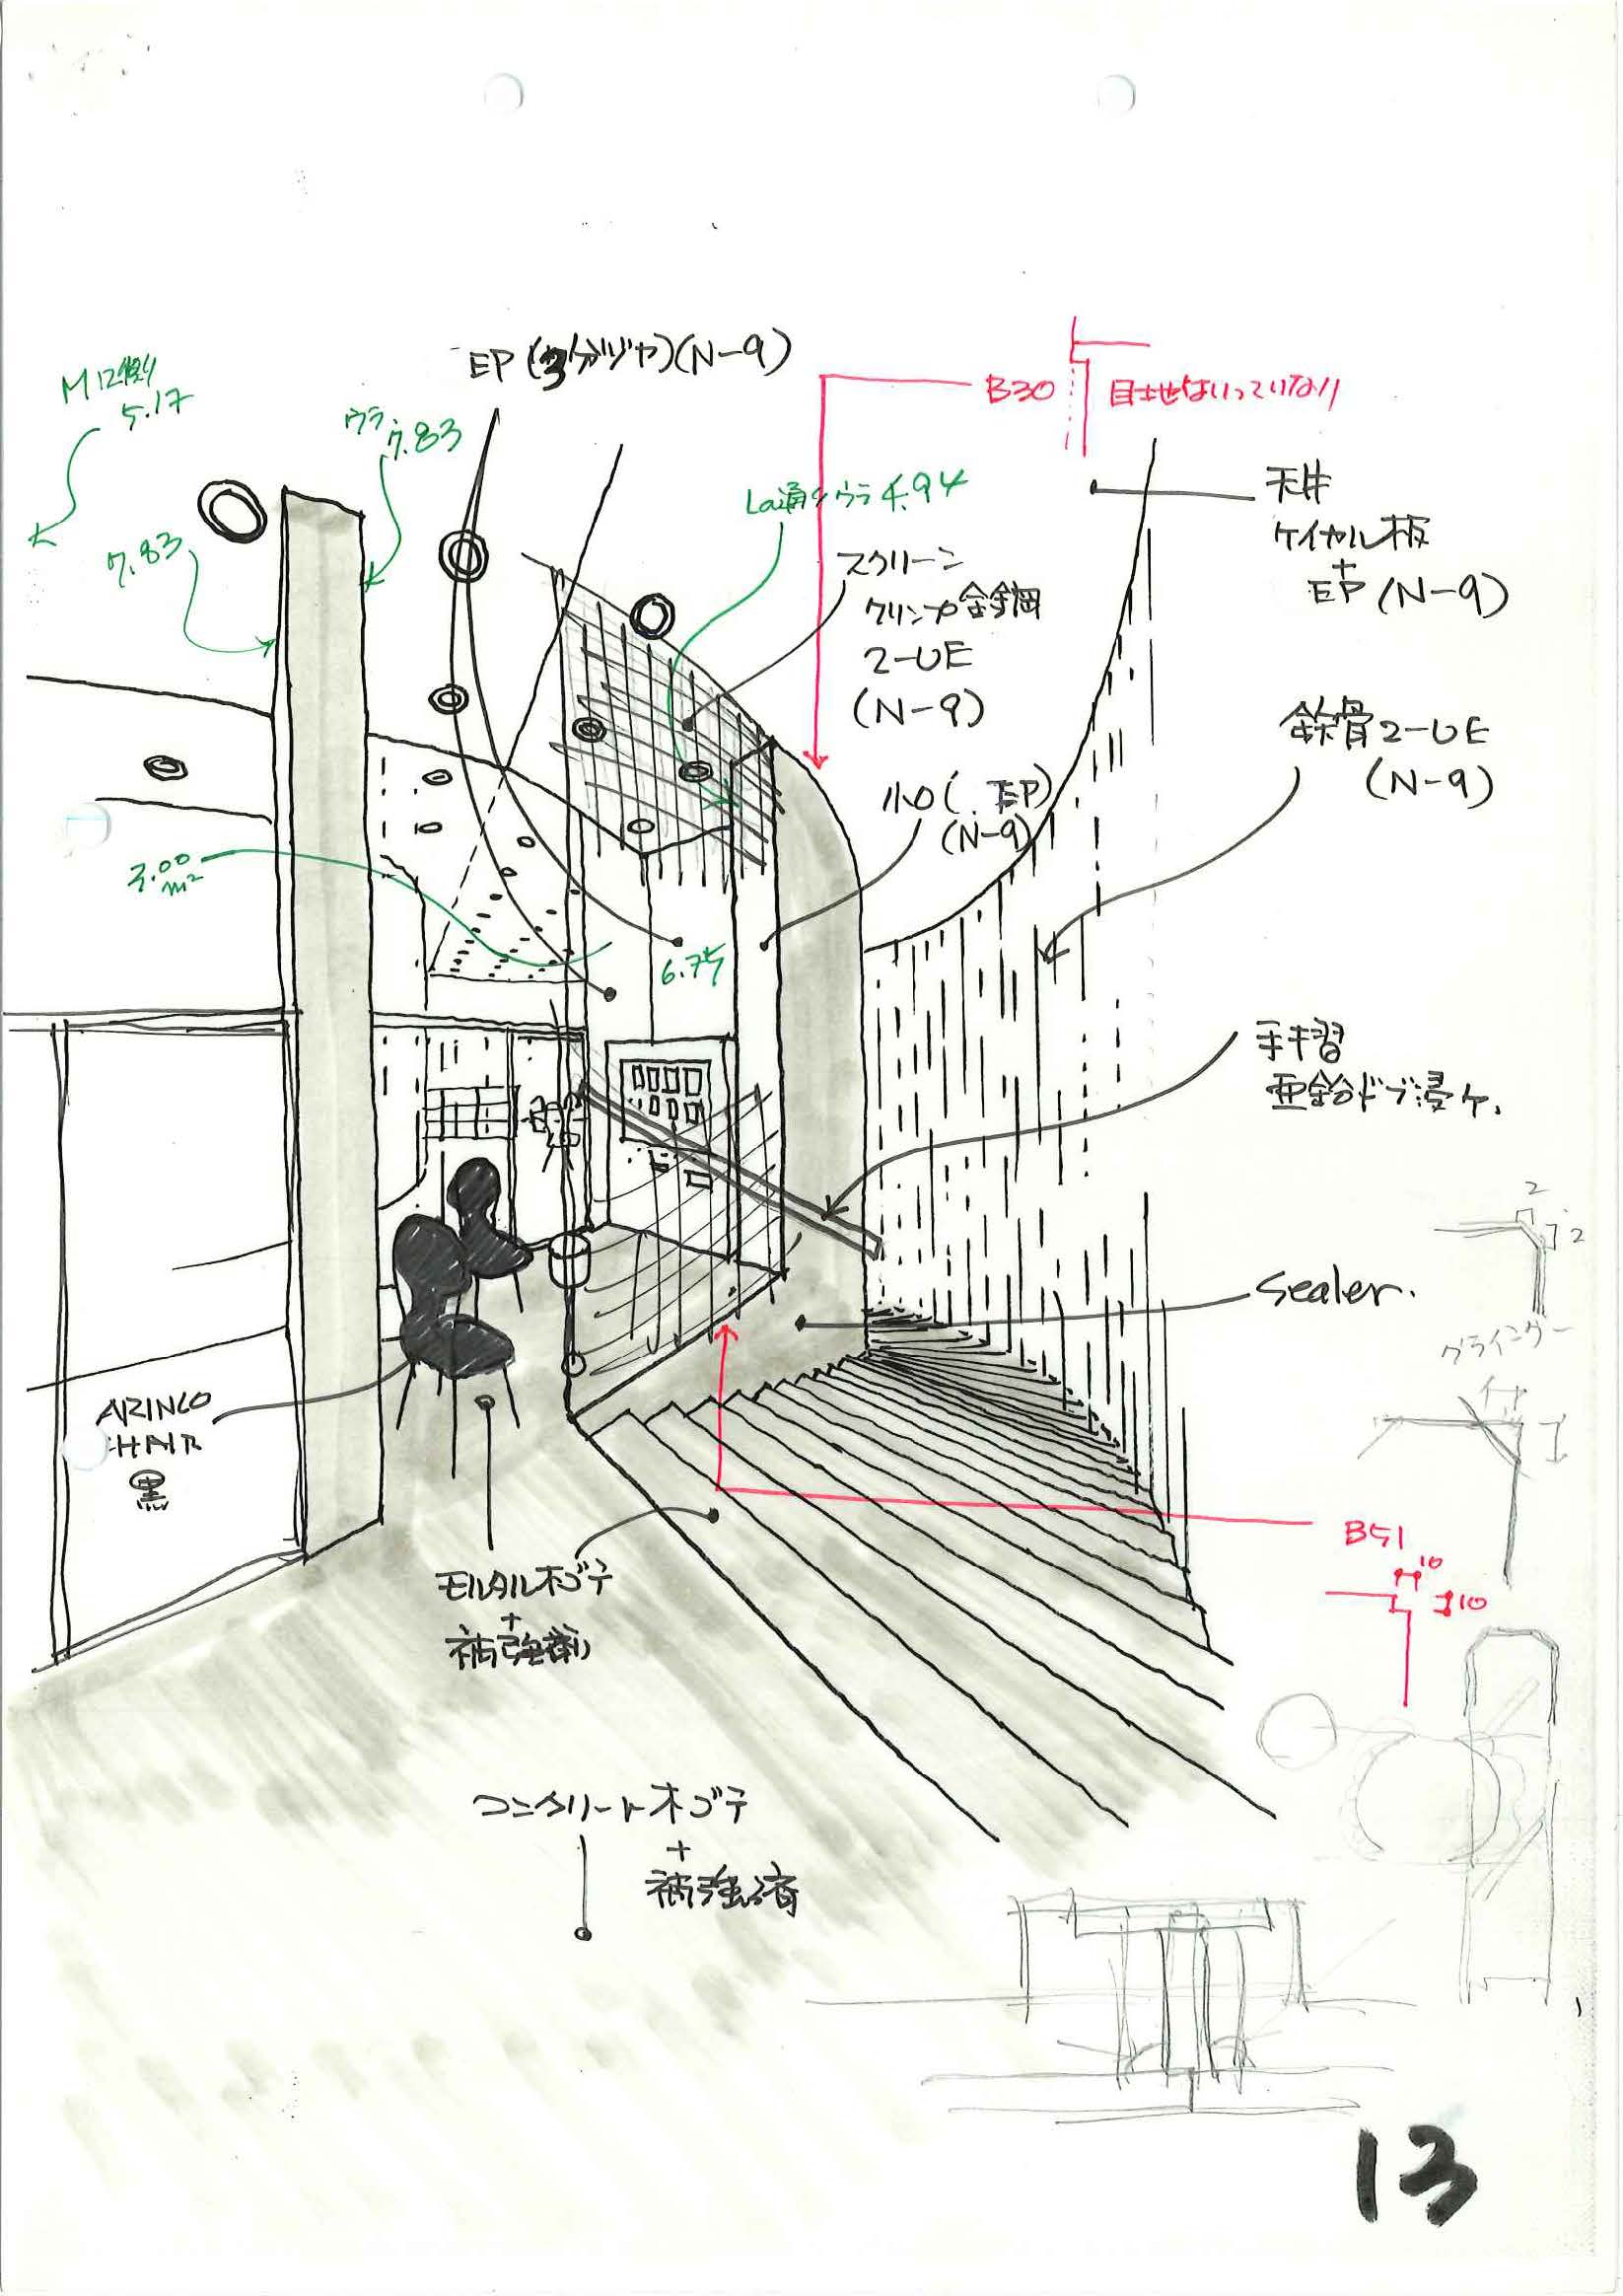 EP (3分ツヤ)(N-9)
B30
目地はいっていない
M12側
5.17
ウラ
7.83
7.83
La通りウラ 4.94
スクリーン
クリンプ金網
2-UE
(N-9)
天井
ケイカル板
+
EP (N-9)
鉄骨2-UE
(N-9)
小口( EP)
(N-9)
3.00
m²
6.75
手摺
亜鉛ドブ浸ケ.
2
2
Sealer.
CHAIR
黒
B51
10
10
モルタル木ゴテ
+
補強剤
コンクリート木ゴテ
+
補強済
13